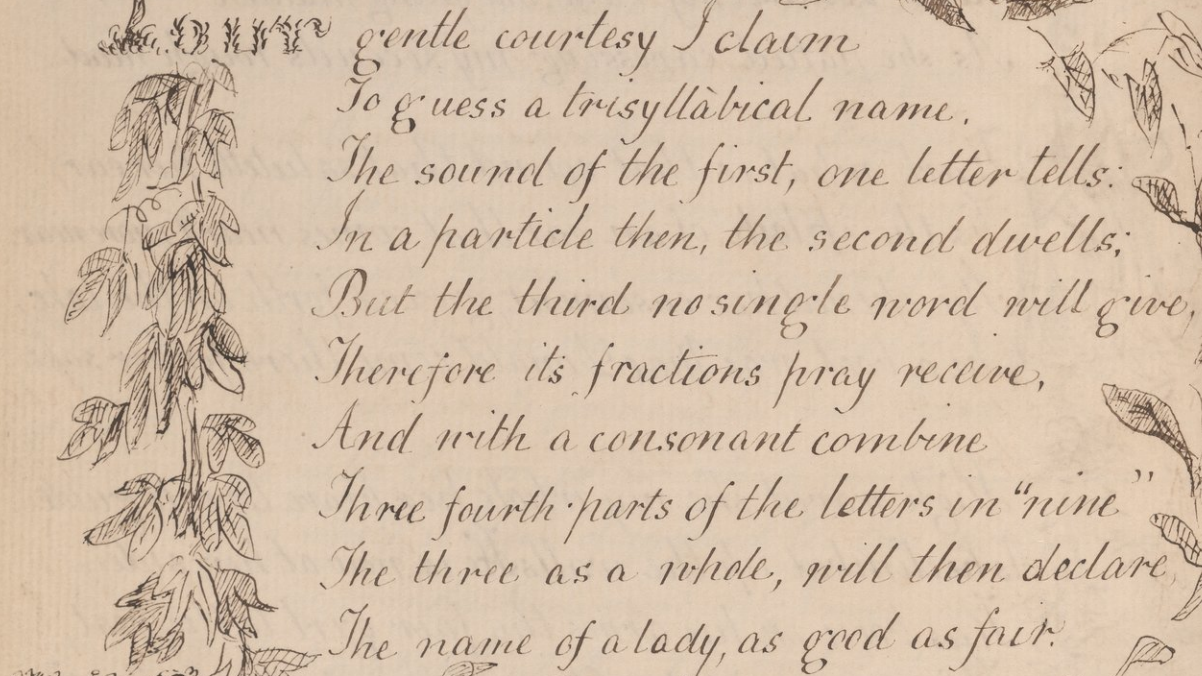 gentle courtesy I claim
To guess a trisyllàbical name.
The sound of the first, one letter tells:
In a particle then, the second dwells;
But the third no single word will give,
Therefore its fractions pray receive,
And with a consonant combine
Three fourth parts of the letters in "nine"
The three as a whole, will then declare,
The name of a lady, as good as fair.